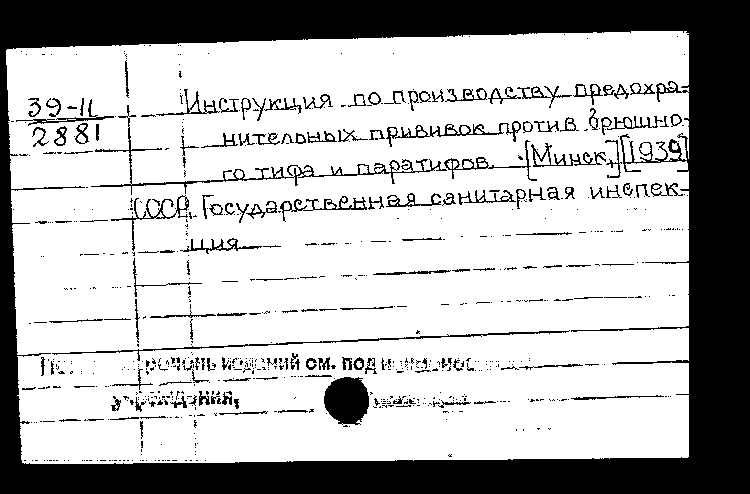 39-11
2881
Инструкция по производству предохра-
нительных прививок против брюшно-
го тифа и паратифов. [Минск,] [1939]
СССР. Государственная санитарная инспек-
ция
изданий см. под
учреждения,